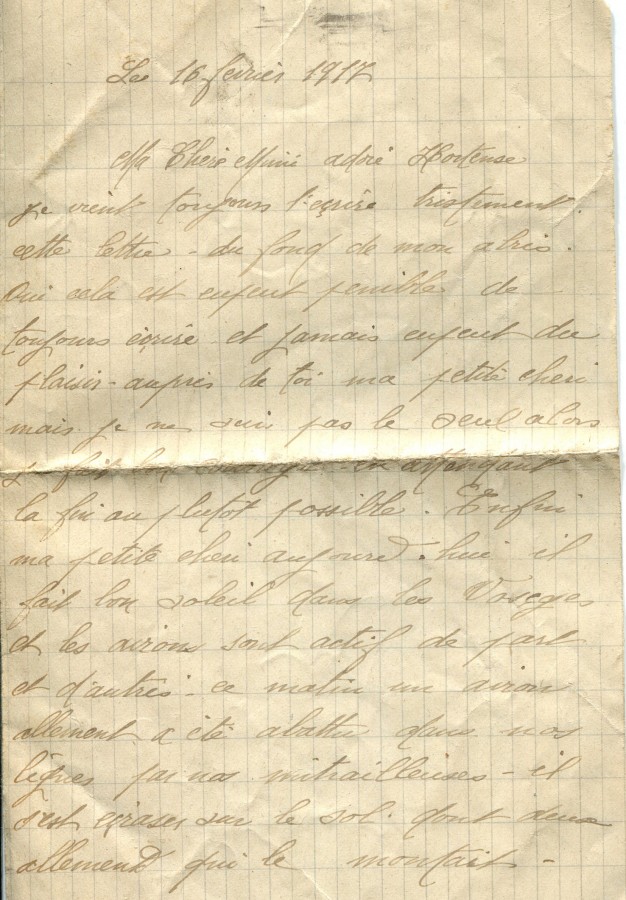 Le 16 fevrier 1917
Ma Chère Mimi adoré Hortense
je vient toujours t'ecrire tristement
cette lettre - du fond de mon abris.
Oui cela est enfent penible de
toujours écrire et jamais enfent du
plaisir - aupres de toi ma petite cheri
mais je ne suis pas le seul alors
fait bon courage - en attendant
la fin au plutot possible. Enfin
ma petite cheri aujourd'hui il
fait bon soleil dans les Vosges
et les avions sont actif de part
et d'autres - ce matin un avion
allement a été abattu dans nos
lignes par nos mitrailleuses - il
s'est ecraser sur le sol. dont deux
allemend qui le montait -